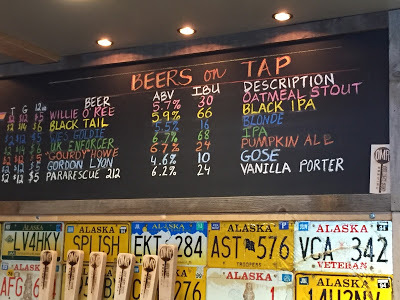 BEERS on TAP
T G 12oz BEER ABV IBU DESCRIPTION
$2 $5 WILLIE O'REE 5.7% 30 OATMEAL STOUT
$2 $4 $6 BLACK TAIL 5.9% 66 BLACK IPA
GOLDIE 5.5% 16 BLONDE
U.K. ENFORCER 6.7% 68 IPA
$2 $5 GOURDY HOWE 6.7% 24 PUMPKIN ALE
$2 $5 GORDON LYON 4.6% 10 GOSE
$2 $12 $5 PARARESCUE 212 6.2% 24 VANILLA PORTER
ALASKA
LV4HKY
ALASKA
SPLISH
ALASKA
EKT 284
ALASKA
AST 576
TROOPERS
ALASKA
VCA 342
VETERAN
ALASKA
ALASKA
ALASKA
ALASKA